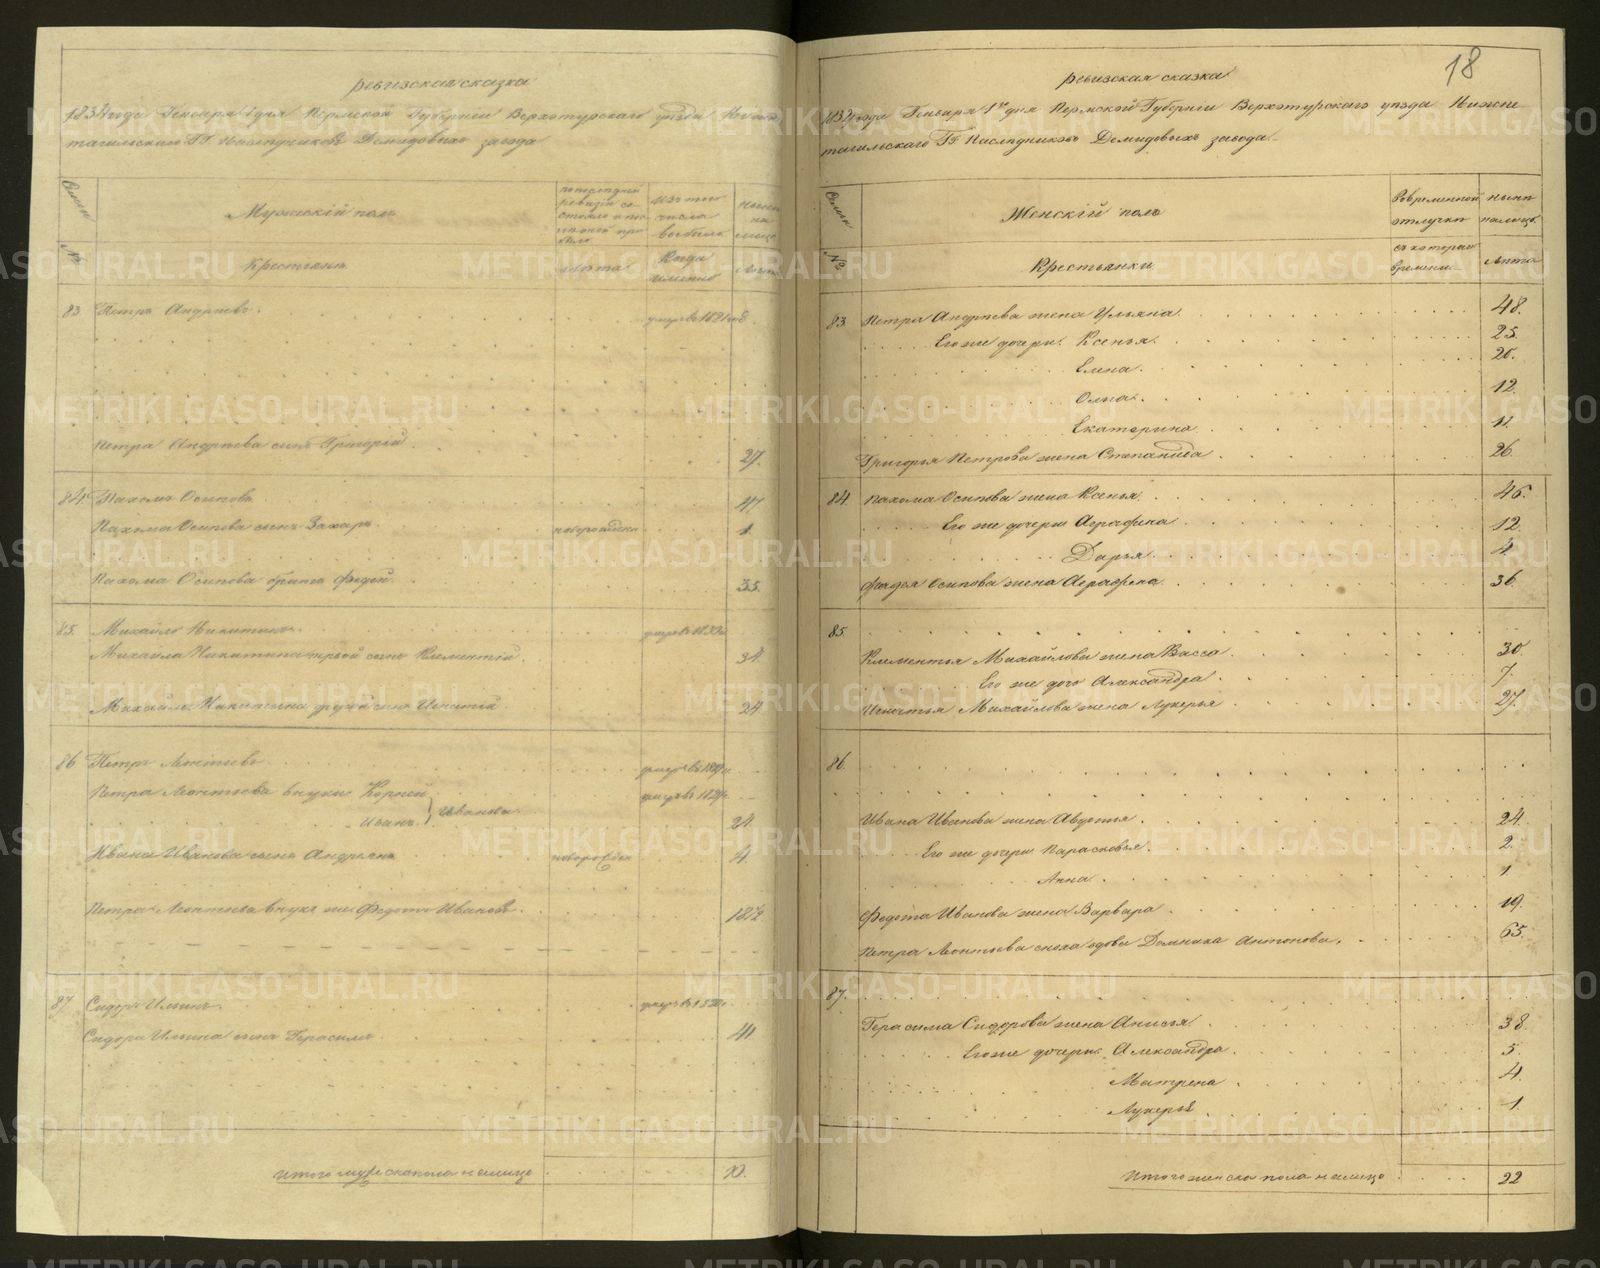 ревизская сказка
1834 года Генваря 1 дня Пермской Губернiи Верхотурскаго уезда Нижне
тагильскаго ГГ. Наследниковъ Демидовыхъ завода
Семьи
Мужескiй полъ
по последней ревизiи состояло и после оной прибыло
Изъ того числа выбыло
Ныне на лицо
№
Крестьяне
лета
Когда именно
Лета
83. Петръ Андреевъ.
Петра Андреева сынъ Григорiй 27.
84. Пахомъ Осиповъ 47
Пахома Осипова сынъ Захаръ новорожден 1
Пахома Осипова братъ Фадей 35.
85. Михайло Никитинъ.
Михайла Никитина сынъ Климентiй 34.
Михайла Никитина другой сынъ Игнатiй 24
86 Петръ Леонтьевъ
Петра Леонтьева внуки Корней
Иванъ } Ивановы 24
Ивана Иванова сынъ Андреянъ новорожден 4
Петра Леонтьева внукъ же Федотъ Ивановъ 18 1/2
87 Сидоръ Ильинъ
Сидора Ильина сынъ Герасимъ 41
Итого мужеска пола на лицо 10.
18
ревизская сказка
1834 года Генваря 1го дня Пермской Губернiи Верхотурскаго уезда Нижне
тагильскаго ГГ. Наследниковъ Демидовыхъ завода.
Семьи
Женскiй полъ
Во временной отлучке
Ныне на лицо
№
Крестьянки
съ котораго времени
Лета
83 Петра Андреева жена Ульяна 48.
Его же дочери. Ксенья 25.
Елена 20.
Олна. 12
Екатерина 11.
Григорья Петрова жена Степанида 26.
84. Пахома Осипова жена Ксенья 46.
Его же дочери Аграфена 12.
Дарья 4.
Фадея Осипова жена Аграфена 36.
85.
Климентья Михайлова жена Васса 30.
Его же дочь Александра 7.
Игнатья Михайлова жена Лукерья 27.
86.
Ивана Иванова жена Авдотья 24.
Его же дочери Парасковья 2.
Анна 1
Федота Иванова жена Варвара 19.
Петра Леонтьева сноха вдова Домника Антонова. 65.
87.
Герасима Сидорова жена Анисья 38
Его же дочери Александра 5.
Матрена 4
Лукерья 1
Итого женска пола на лицо 22
METRIKI.GASO-URAL.RU